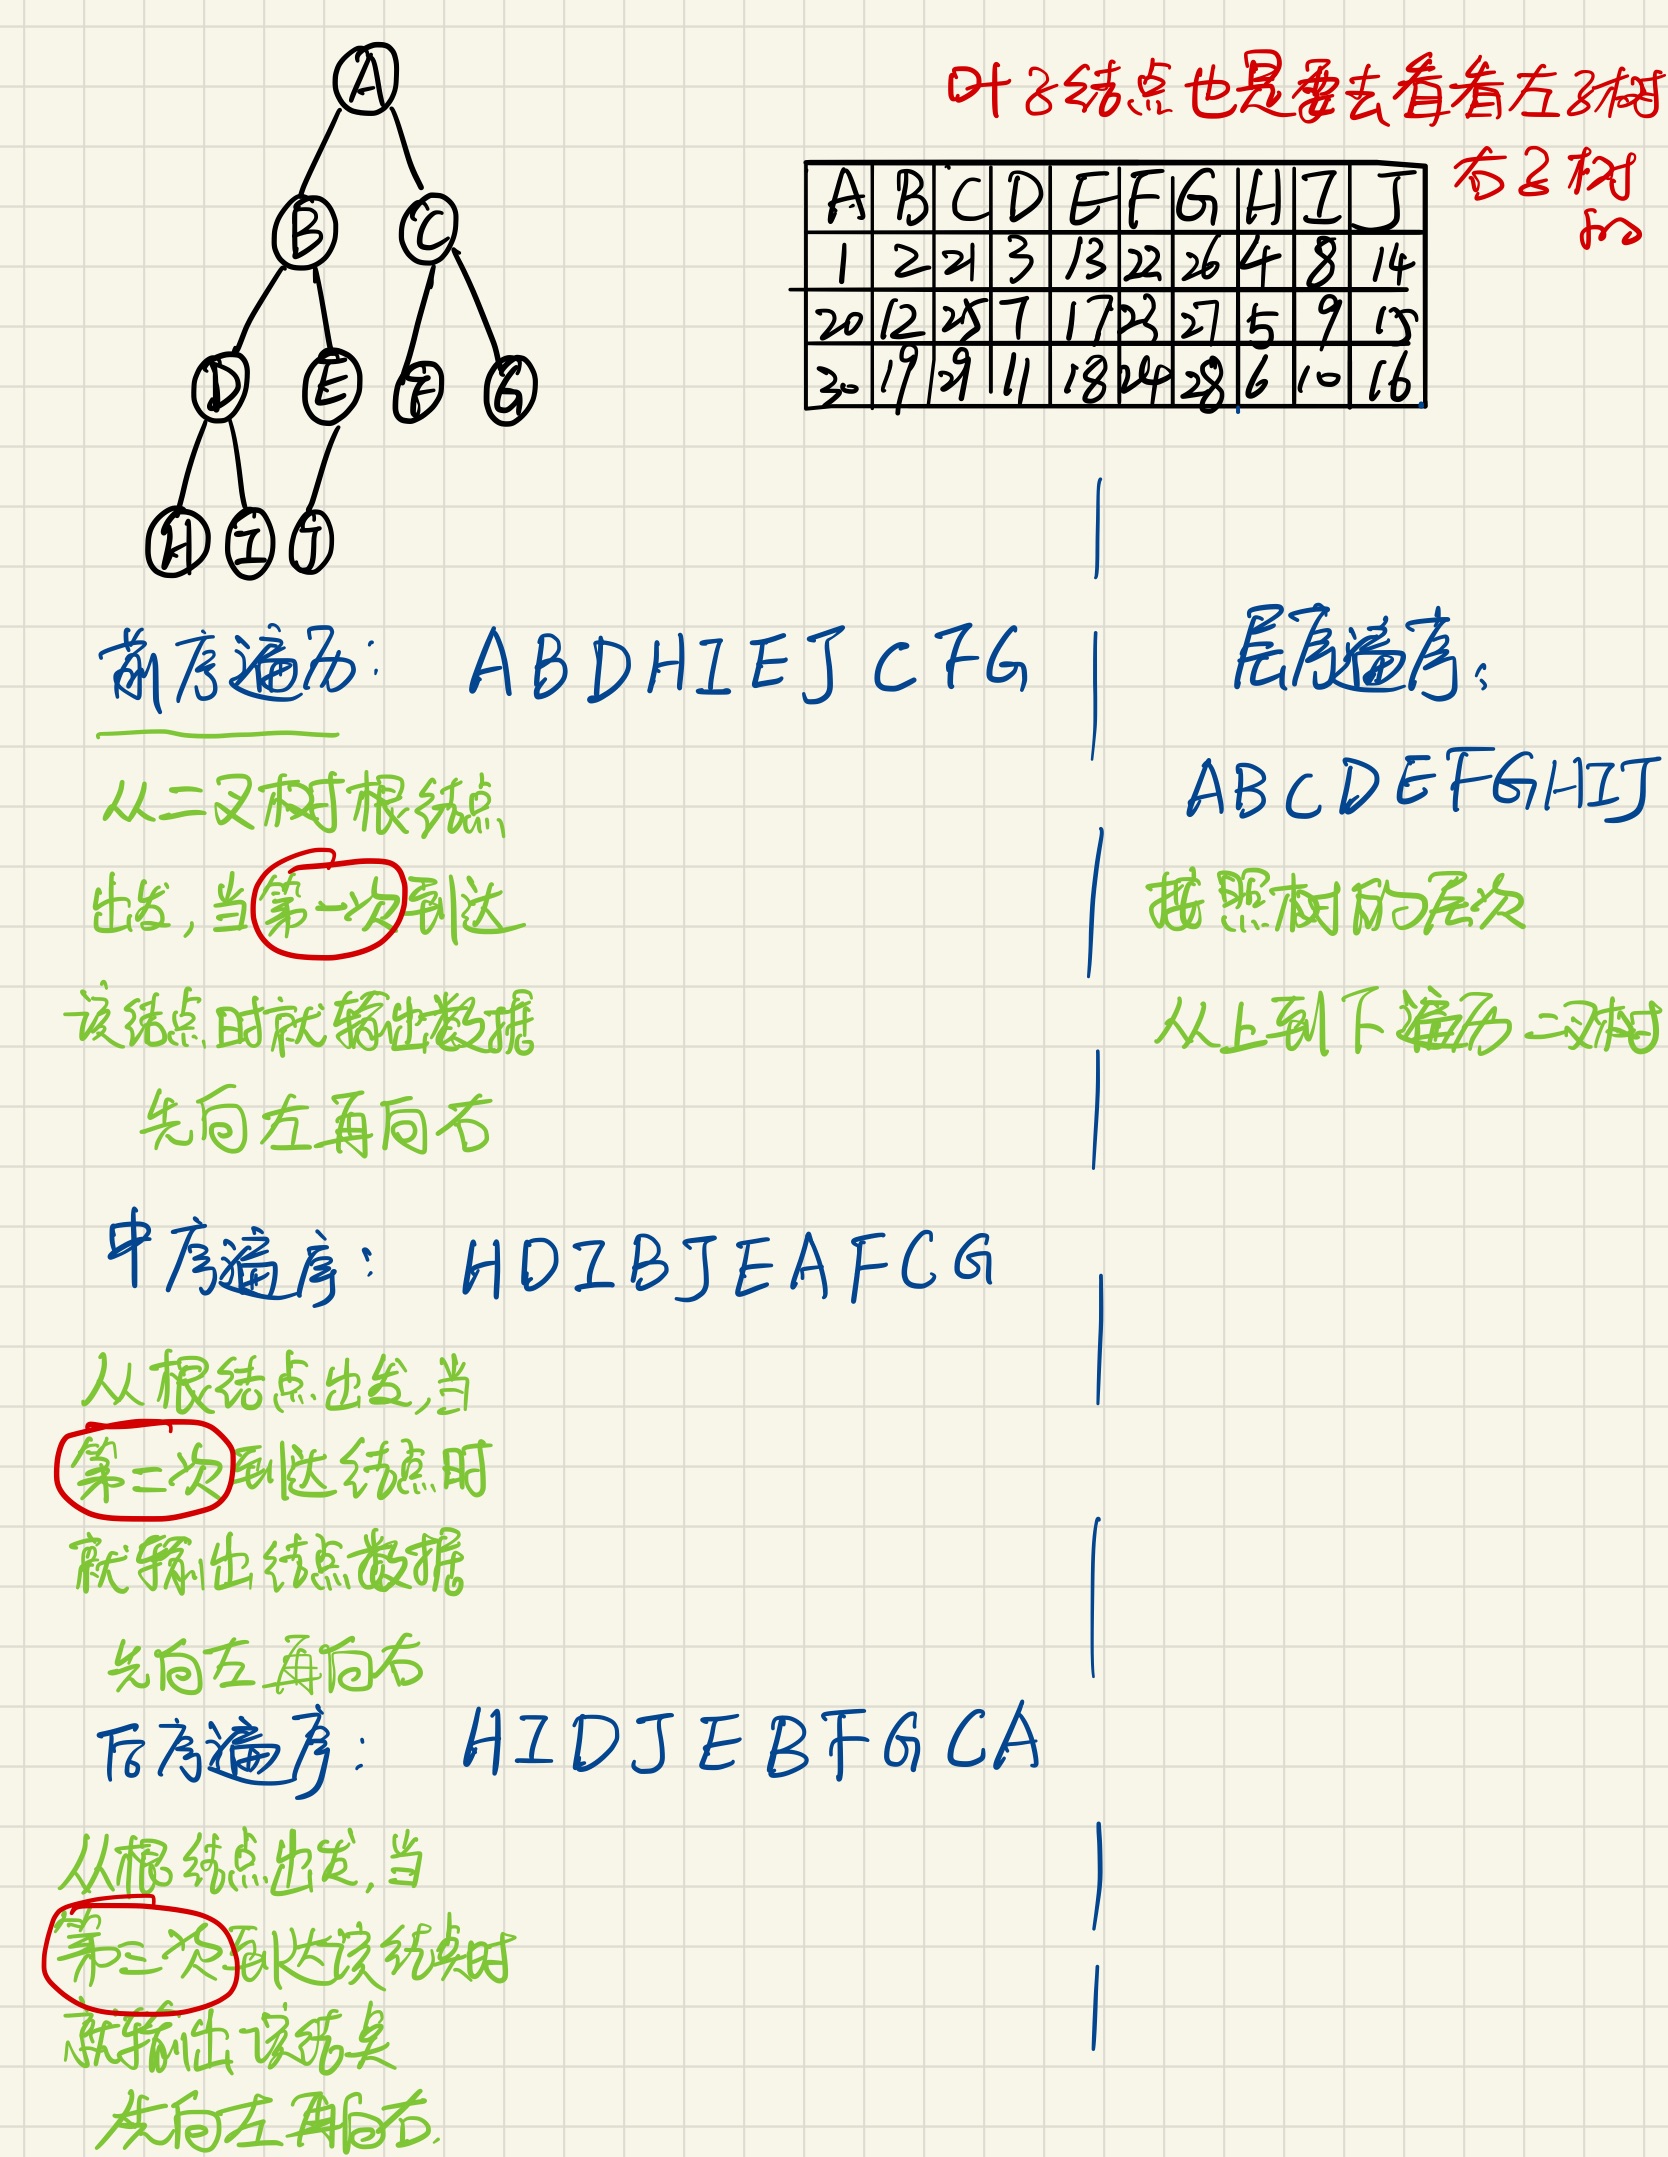 A
B C
D E F G
H I J
叶子结点也是要去看看左子树
右子树
的
A B C D E F G H I J
1 2 21 3 13 22 26 4 8 14
20 12 25 7 17 23 27 5 9 15
30 19 29 11 18 24 28 6 10 16
前序遍历: ABDHIEJCFG
从二叉树根结点
出发,当第一次到达
该结点时就输出数据
先向左再向右
中序遍序: HDIBJEAFCG
从根结点出发,当
第二次到达结点时
就输出结点数据
先向左再向右
后序遍序: HIDJEBFGCA
从根结点出发,当
第三次到达该结点时
就输出该结点
先向左再向右.
层序遍序:
ABCDEFGHIJ
按照树的层次
从上到下遍历二叉树